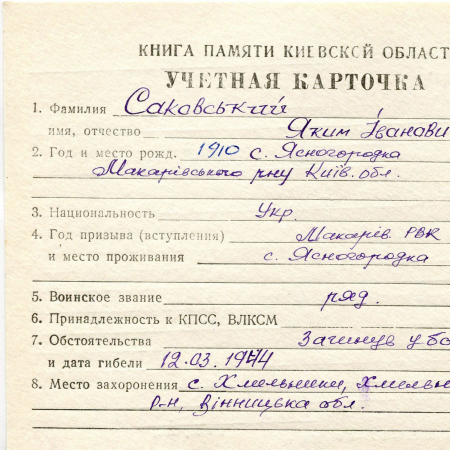 КНИГА ПАМЯТИ КИЕВСКОЙ ОБЛАСТ
УЧЕТНАЯ КАРТОЧКА
1. Фамилия Саковський
имя, отчество Яким Іванови
2. Год и место рожд. 1910 с. Ясногородка
Макарівського р-ну Київ. обл.
3. Национальность Укр.
4. Год призыва (вступления) Макарів. РВК
и место проживания с. Ясногородка
5. Воинское звание ряд.
6. Принадлежность к КПСС, ВЛКСМ
7. Обстоятельства Загинув у бо
и дата гибели 12.03.1944
8. Место захоронения с. Хмельники, Хмельн
р-н, Вінницька обл.